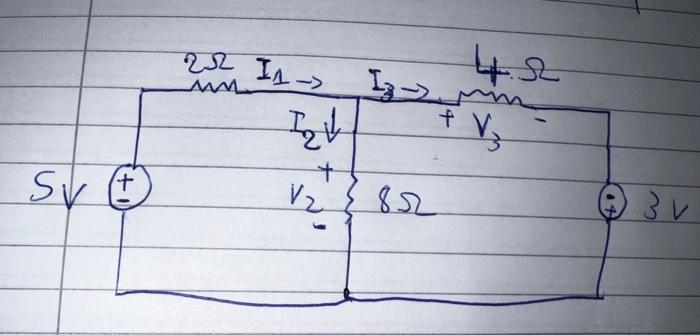 2Ω I1 → I3 → 4.Ω
I2 ↓ + V3 -
5V + - + V2 - 8Ω - + 3V